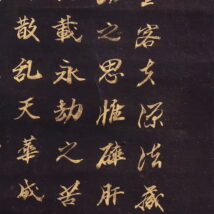 客玄深法藏
之思惟碎肝
載永劫之苦
散乱天華咸